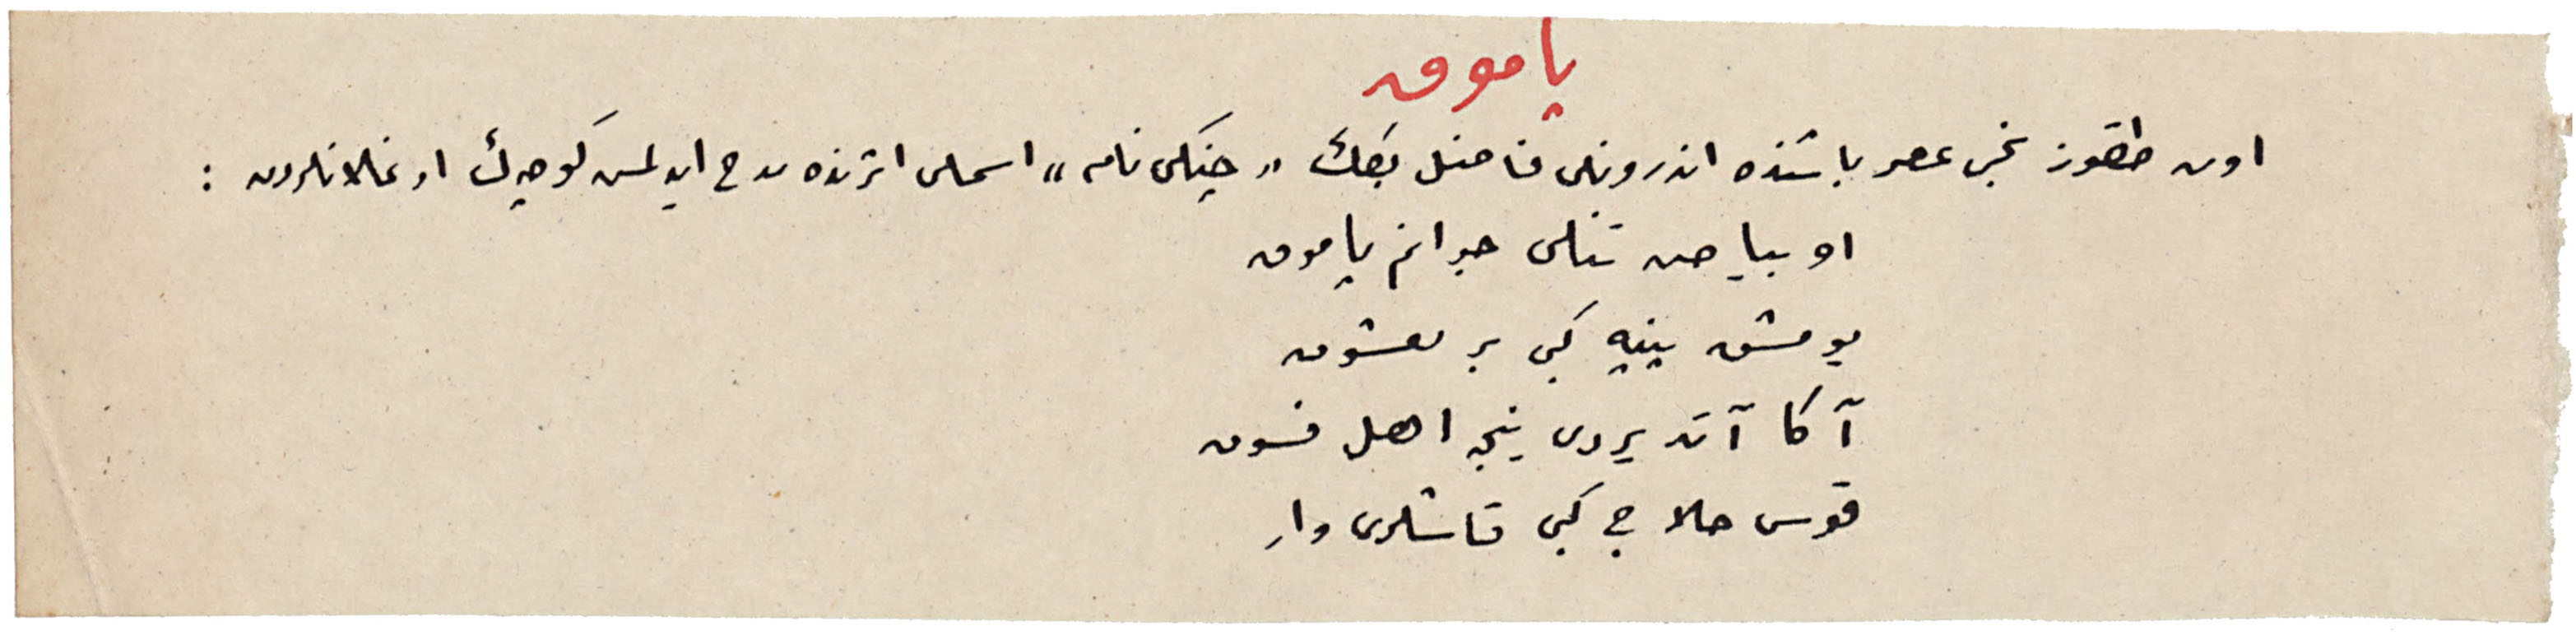 پاموق
اون طقوز نجی عصر باشنده اندرونلی فاضل بكك «چنكی نامه» اسملی اثرنده مدح ایدلمش كوچك اوغلانلردن :
او بیاض تنلی جوانم پاموق
یومشق پنبه كبی بر معشوق
آكا آتدیردی نیجه اهل فسوق
قوس حلاج كبی قاشلری وار